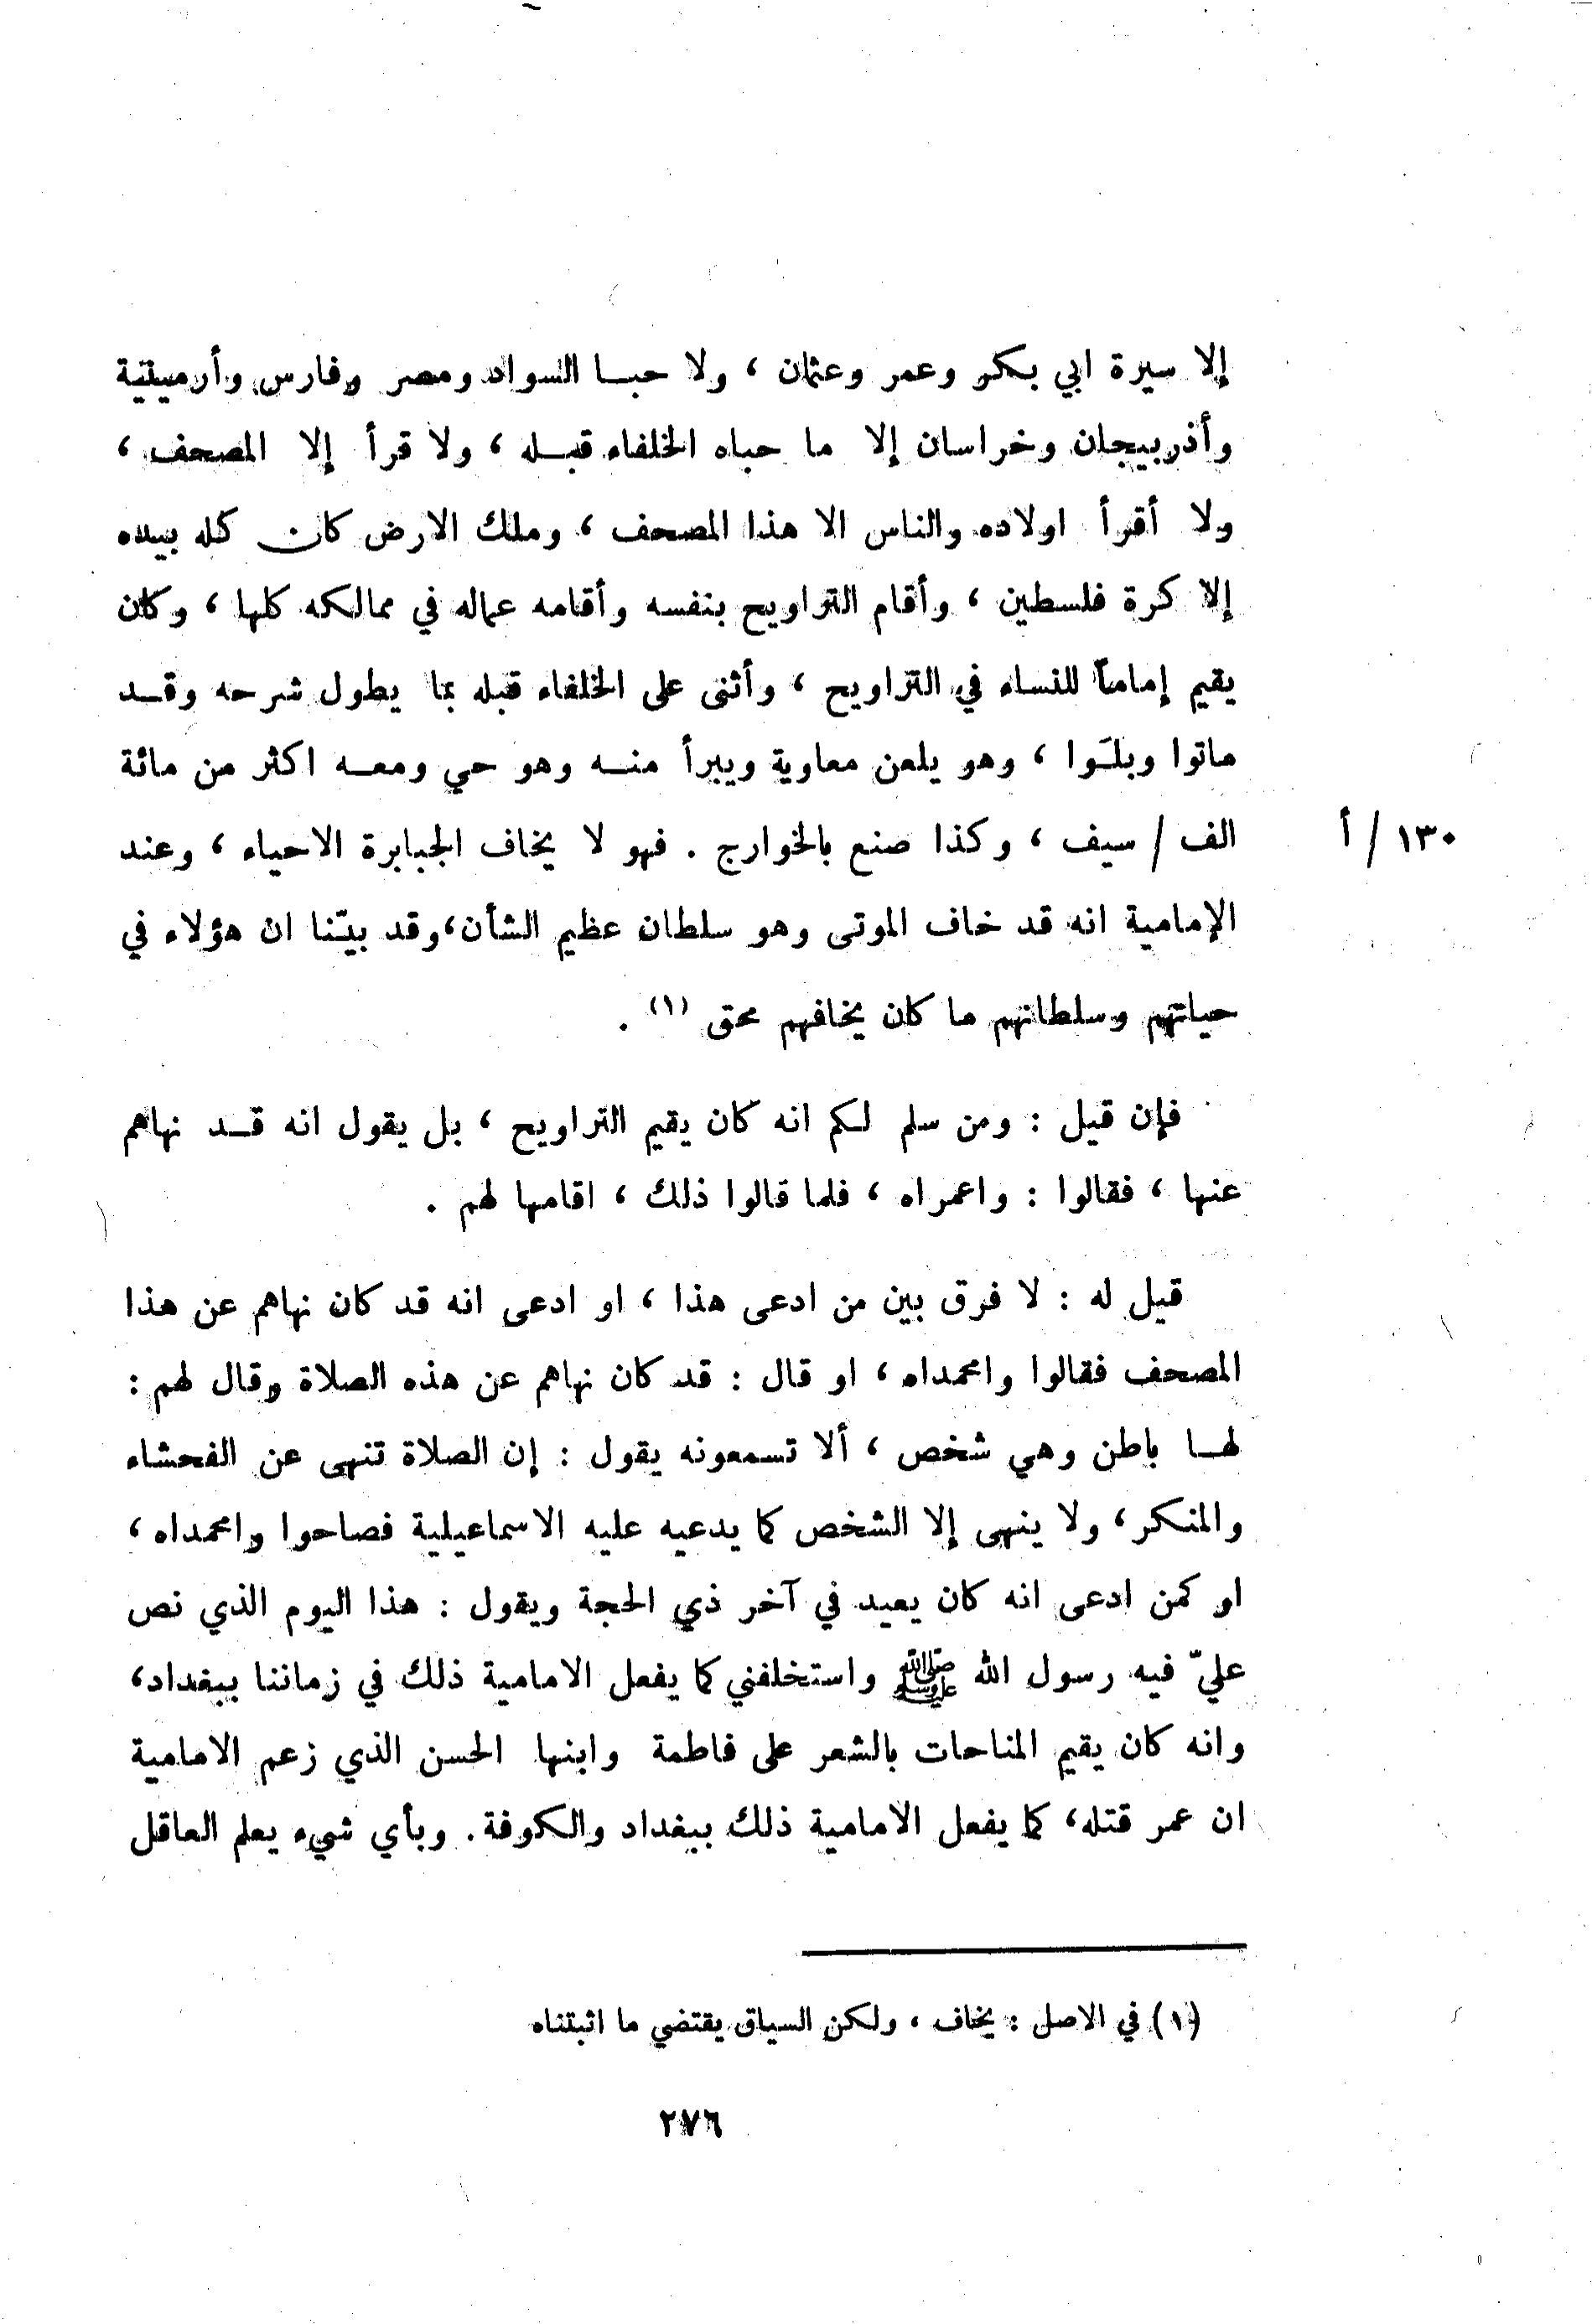 إلا سيرة ابي بكر وعمر وعثمان ، ولا حبا السواد ومصر وفارس وأرمينية
وأذربيجان وخراسان إلا ما حباه الخلفاء قبله ، ولا قرأ إلا المصحف ،
ولا أقرأ اولاده والناس الا هذا المصحف ، وملك الارض كان كله بيده
إلا كرة فلسطين ، وأقام التراويح بنفسه وأقامه عماله في ممالكه كلها ، وكان
يقيم إماماً للنساء في التراويح ، وأثنى على الخلفاء قبله بما يطول شرحه وقد
ماتوا وبلَوا ، وهو يلعن معاوية ويبرأ منه وهو حي ومعه اكثر من مائة
الف / سيف ، وكذا صنع بالخوارج . فهو لا يخاف الجبابرة الاحياء ، وعند
١٣٠ / أ
الإمامية انه قد خاف الموتى وهو سلطان عظيم الشأن، وقد بيّنا ان هؤلاء في
حياتهم وسلطانهم ما كان يخافهم محق (١) .
فإن قيل : ومن سلم لكم انه كان يقيم التراويح ، بل يقول انه قد نهاهم
عنها ، فقالوا : واعمراه ، فلما قالوا ذلك ، اقامها لهم .
قيل له : لا فرق بين من ادعى هذا ، او ادعى انه قد كان نهاهم عن هذا
المصحف فقالوا وامحمداه ، او قال : قد كان نهاهم عن هذه الصلاة وقال لهم :
لها باطن وهي شخص ، ألا تسمعونه يقول : إن الصلاة تنهى عن الفحشاء
والمنكر ، ولا ينهى إلا الشخص كما يدعيه عليه الاسماعيلية فصاحوا وامحمداه ،
او كمن ادعى انه كان يعيد في آخر ذي الحجة ويقول : هذا اليوم الذي نص
عليّ فيه رسول الله ﷺ واستخلفني كما يفعل الامامية ذلك في زماننا ببغداد،
وانه كان يقيم المناحات بالشعر على فاطمة وابنها الحسن الذي زعم الامامية
ان عمر قتله، كما يفعل الامامية ذلك ببغداد والكوفة. وبأي شيء يعلم العاقل
(١) في الاصل : يخاف ، ولكن السياق يقتضي ما اثبتناه
٢٧٦